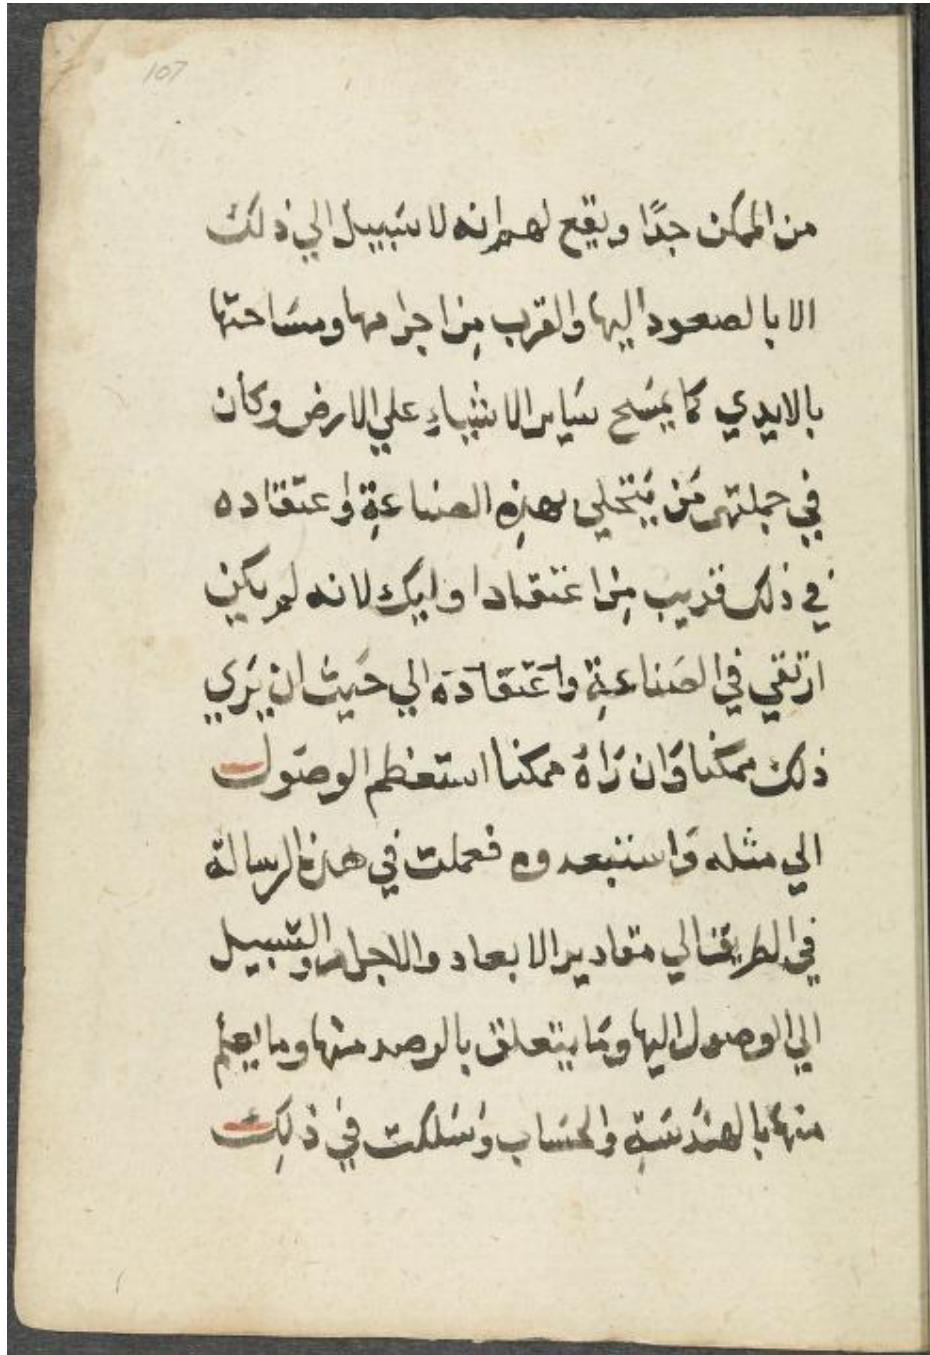 107
من الممكن جدًا ويقع لهم انه لا سبيل الي ذلك
الا بالصعود اليها والقرب من اجرامها ومساحتها
بالايدي كما يمسح ساير الاشياء علي الارض وكان
في جملتهم من ينتحلي بهذه الصناعة واعتقاده
في ذلك قريب من اعتقاد اوليك لانه لم يكن
ارتقي في الصناعة واعتقاده الي حيث ان يري
ذلك ممكنا وان راه ممكنا استعظم الوصول
الي مثله واستبعدوه فعملت في هذه الرسالة
في الطريق الي مقادير الابعاد والاجرام والسبيل
الي الوصول اليها وما يتعلق بالرصد منها وما يعلم
منها بالهندسة والحساب وسلكت في ذلك